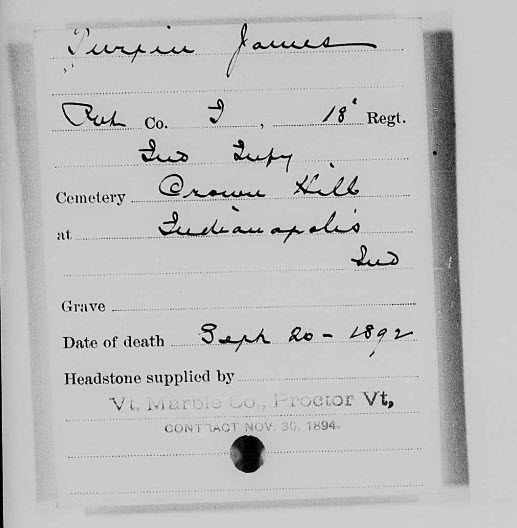 Turpin James
Pvt. Co. I, 18" Regt.
Ind Infy
Cemetery Crown Hill
at Indianapolis
Ind
Grave
Date of death Sept 20 - 1892
Headstone supplied by
Vt. Marble Co., Proctor Vt,
CONTRACT NOV. 30, 1894.